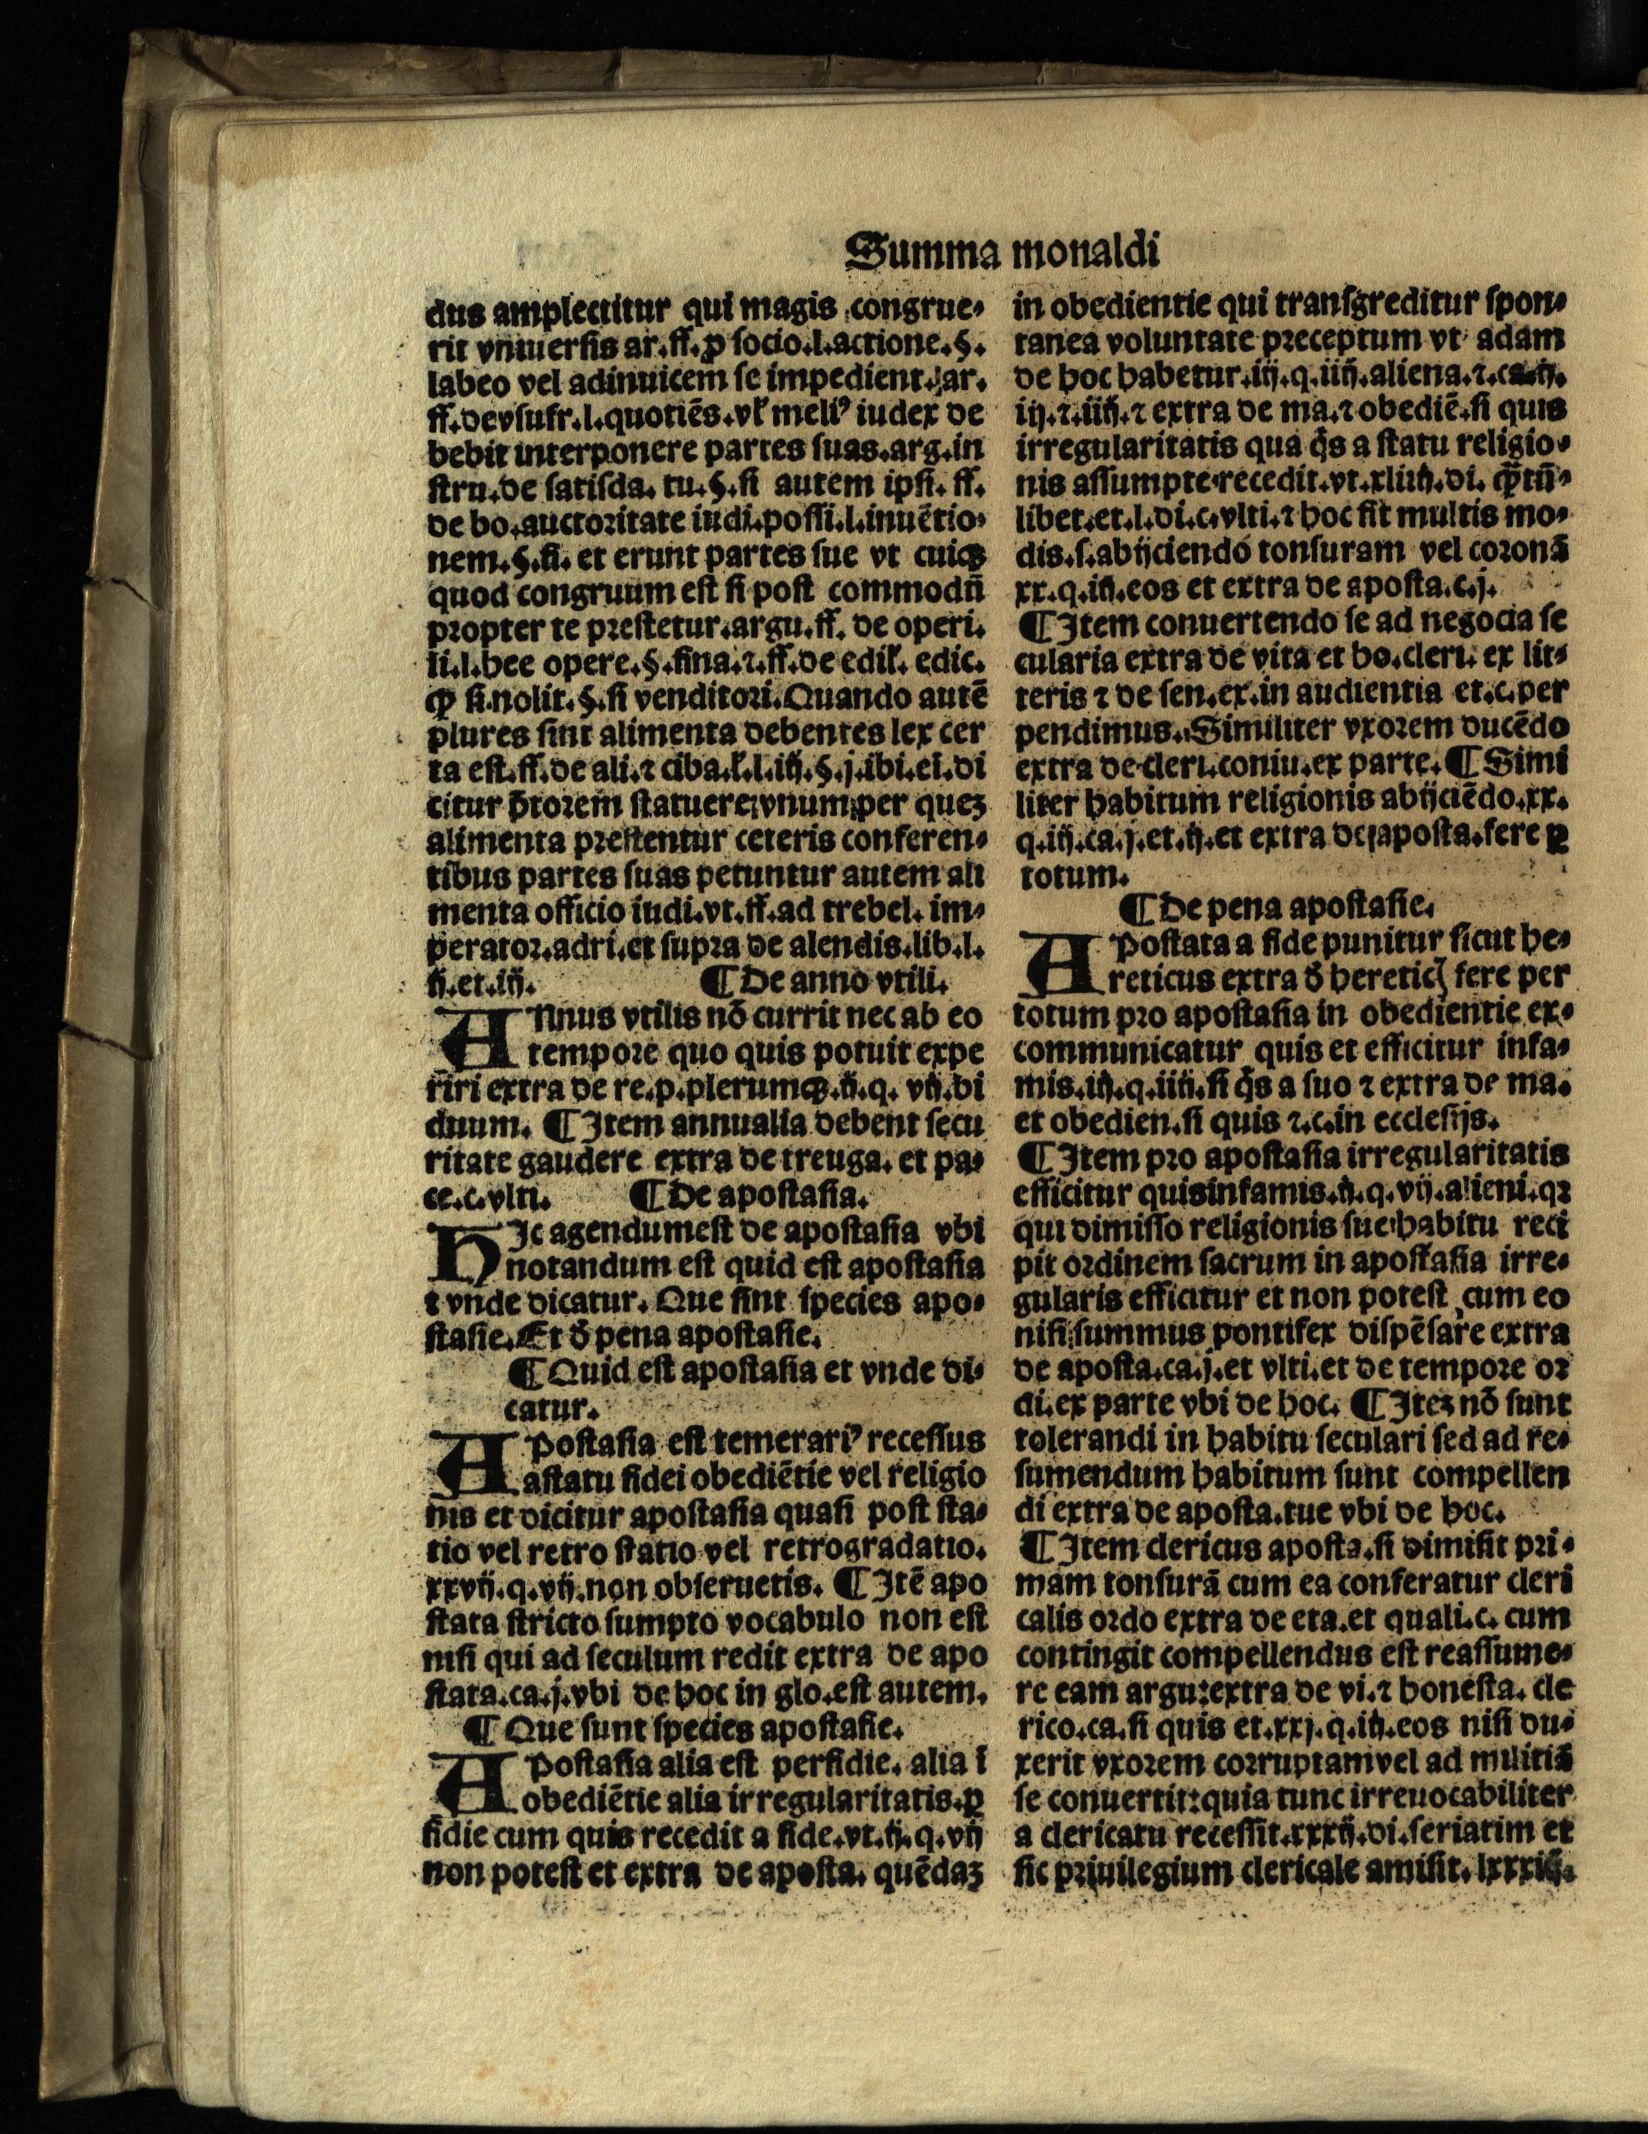 Summa monaldi
dus amplectitur qui magis congrue⸗
rit vniuersis ar.ff.ꝓ socio.l.actione.§.
labeo vel adinuicem se impedient.ar.
ff.de vsufr.l.quotiēs.vl̓ meliꝰ iudex de
bebit interponere partes suas.arg.in
stru.de satisda. tu.§.si autem ipsi. ff.
de bo.auctoritate iudi.possi.l.inuētio⸗
nem.§.fi. et erunt partes sue vt cuiqꝫ
quod congruum est si post commodū
propter te prestetur.argu.ff. de operi.
li.l.hee opere.§.fina.⁊.ff.de edil̓. edic.
ꝙ si nolit.§.si venditori.Quando autē
plures sint alimenta debentes lex cer
ta est.ff.de ali.⁊ ciba.l̓.l.iij.§.j.ibi.ei.di
citur p̄torem statuere vnum per quez
alimenta prestentur ceteris conferen⸗
tibus partes suas petuntur autem ali
menta officio iudi.vt.ff.ad trebel. im⸗
perator.adri.et supra de alendis.lib.l.
ij.et.iij. ¶ De anno vtili.
ANnus vtilis nō currit nec ab eo
tempore quo quis potuit expe
riri extra de re.p.plerumqꝫ.ij.q. vij.bi
duum. ¶ Item annualia debent secu
ritate gaudere extra de treuga. et pa⸗
ce.c.vlti. ¶ De apostasia.
HIc agendumest de apostasia vbi
notandum est quid est apostasia
⁊ vnde dicatur. Que sint species apo⸗
stasie.Et d̄ pena apostasie.
¶ Quid est apostasia et vnde di⸗
catur.
APostasia est temerariꝰ recessus
astatu fidei obediētie vel religio
nis et dicitur apostasia quasi post sta⸗
tio vel retro statio vel retrogradatio.
xxvij.q.vij.non obseruetis. ¶ Itē apo
stata stricto sumpto vocabulo non est
nisi qui ad seculum redit extra de apo
stata.ca.j.vbi de hoc in glo.est autem.
¶ Que sunt species apostasie.
APostasia alia est perfidie. alia ī
obediētie alia irregularitatis.ꝑ
fidie cum quis recedit a fide.vt.ij.q.vij
non potest et extra de aposta. quēdaꝫ
in obedientie qui transgreditur spon⸗
tanea voluntate preceptum vt adam
de hoc habetur.iij.q.iiij.aliena.⁊.ca.ij.
iij.⁊.iiij.⁊ extra de ma.⁊ obediē.si quis
irregularitatis qua q̄s a statu religio⸗
nis assumpte recedit.vt.xliiij.di. ꝙ̄tū⸗
libet.et.l.di.c.vlti.⁊ hoc fit multis mo⸗
dis.s.abijciendo tonsuram vel coronā
xx.q.iij.eos et extra de aposta.c.j.
¶ Item conuertendo se ad negocia se
cularia extra de vita et ho.cleri. ex lit⸗
teris ⁊ de sen.ex.in audientia et.c.per
pendimus. Similiter vxorem ducēdo
extra de cleri.coniu.ex parte. ¶ Simi
liter habitum religionis abijciēdo.xx.
q.iij.ca.j.et.ij.et extra de aposta.fere ꝑ
totum.
¶ De pena apostasie.
APostata a fide punitur sicut he⸗
reticus extra d̄ heretic̣ fere per
totum pro apostasia in obedientie ex⸗
communicatur quis et efficitur infa⸗
mis.iij.q.iiij.si q̄s a suo ⁊ extra de ma.
et obedien.si quis ⁊.c.in ecclesijs.
¶ Item pro apostasia irregularitatis
efficitur quisinfamis.ij.q.vij.alieni.qꝛ
qui dimisso religionis sue habitu reci
pit ordinem sacrum in apostasia irre⸗
gularis efficitur et non potest cum eo
nisi summus pontifex dispēsare extra
de aposta.ca.j.et vlti.et de tempore or
di.ex parte vbi de hoc. ¶ Iteꝫ nō sunt
tolerandi in habitu seculari sed ad re⸗
sumendum habitum sunt compellen
di extra de aposta.tue vbi de hoc.
¶ Item clericus aposta.si dimisit pri⸗
mam tonsurā cum ea conferatur cleri
calis ordo extra de eta.et quali.c. cum
contingit compellendus est reassume⸗
re eam argu:extra de vi.⁊ honesta. cle
rico.ca.si quis et.xxj.q.iij.eos nisi du⸗
xerit vxorem corruptamvel ad militiā
se conuertit:quia tunc irreuocabiliter
a clericatu recessit.xxxij.di.seriatim et
sic priuilegium clericale amisit. lxxxiiij.